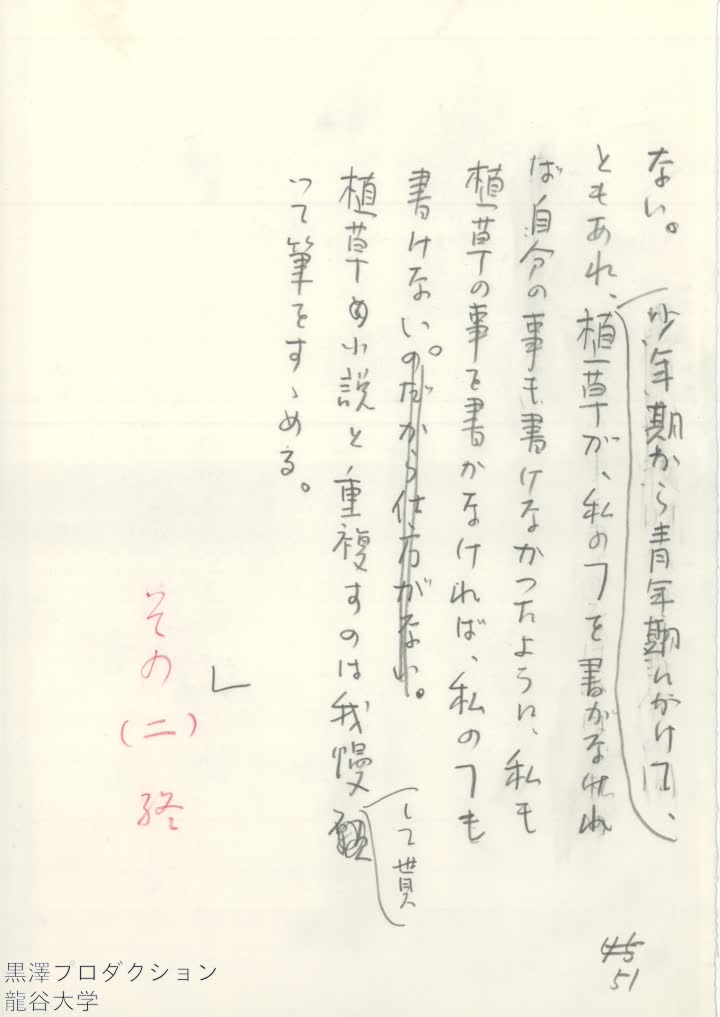 ない。
少年期から青年期にかけて、
ともあれ、植草が、私の事を書かなければ
ば自分の事も書けなかつたように、私も
植草の事を書かなければ、私の事も
書けない。のだから仕方がない。
植草の小説と重複するのは我慢
して貰
つて筆をすゝめる。
」
その(二) 終
45
51
黒澤プロダクション
龍谷大学